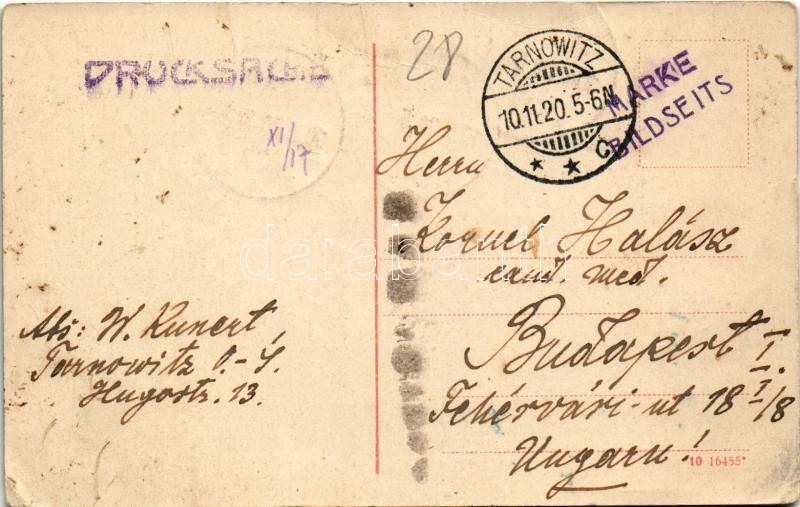 DRUCKSACHE
XI/17
28
TARNOWITZ
10.11.20. 5-6N.
* * C
MARKE
BILDSEITS
Herrn
Kornel Halász
cand. med.
Budapest I.
Fehérvári-út 18 I/8
Ungarn!
Abs: W. Kunert,
Tarnowitz O.-S.
Hugostr. 13.
10 16455*
darabanth